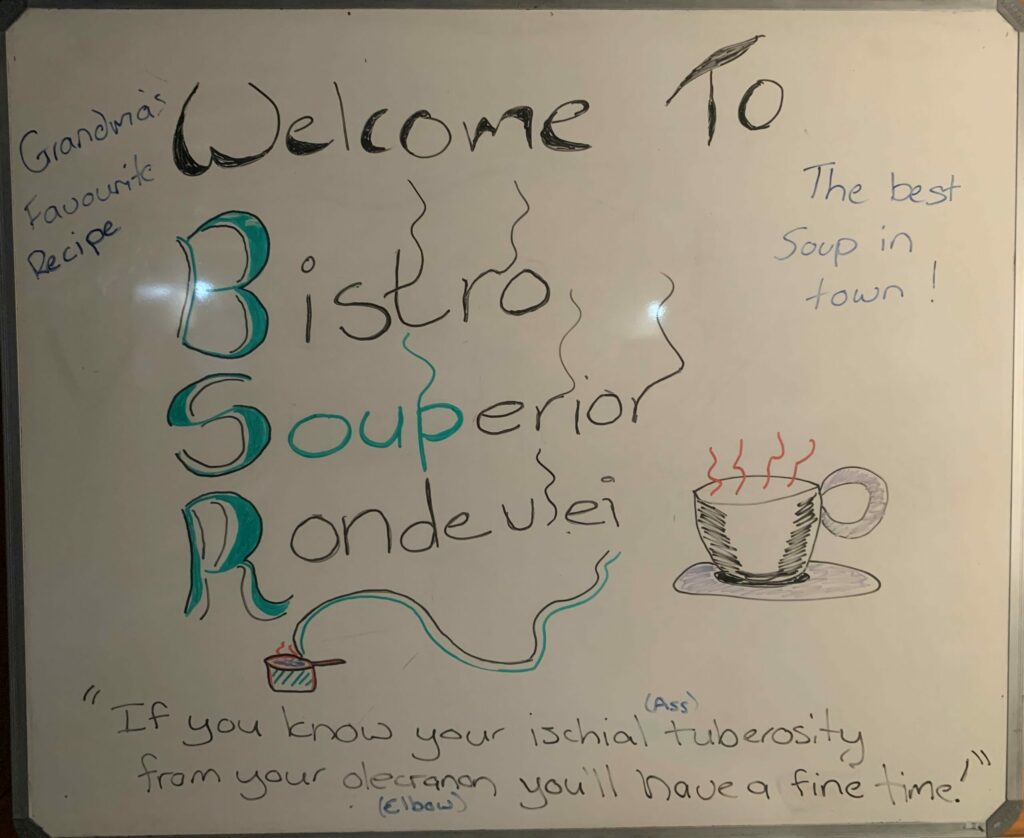 Welcome To
Grandma's
Favourite
Recipe
The best
Soup in
town!
Bistro
Souperior
Rondevusei
"If you know your ischial (Ass) tuberosity
from your olecranon (Elbow) you'll have a fine time!"